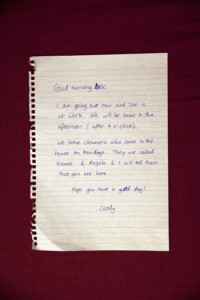 Good morning
I am going out now and Jan is
at work. We will be home in the
afternoon (after 4 o'clock).
We have cleaners who come to the
house on Mondays. They are called
& Angela & I will tell them
that you are here.
Hope you have a good day!